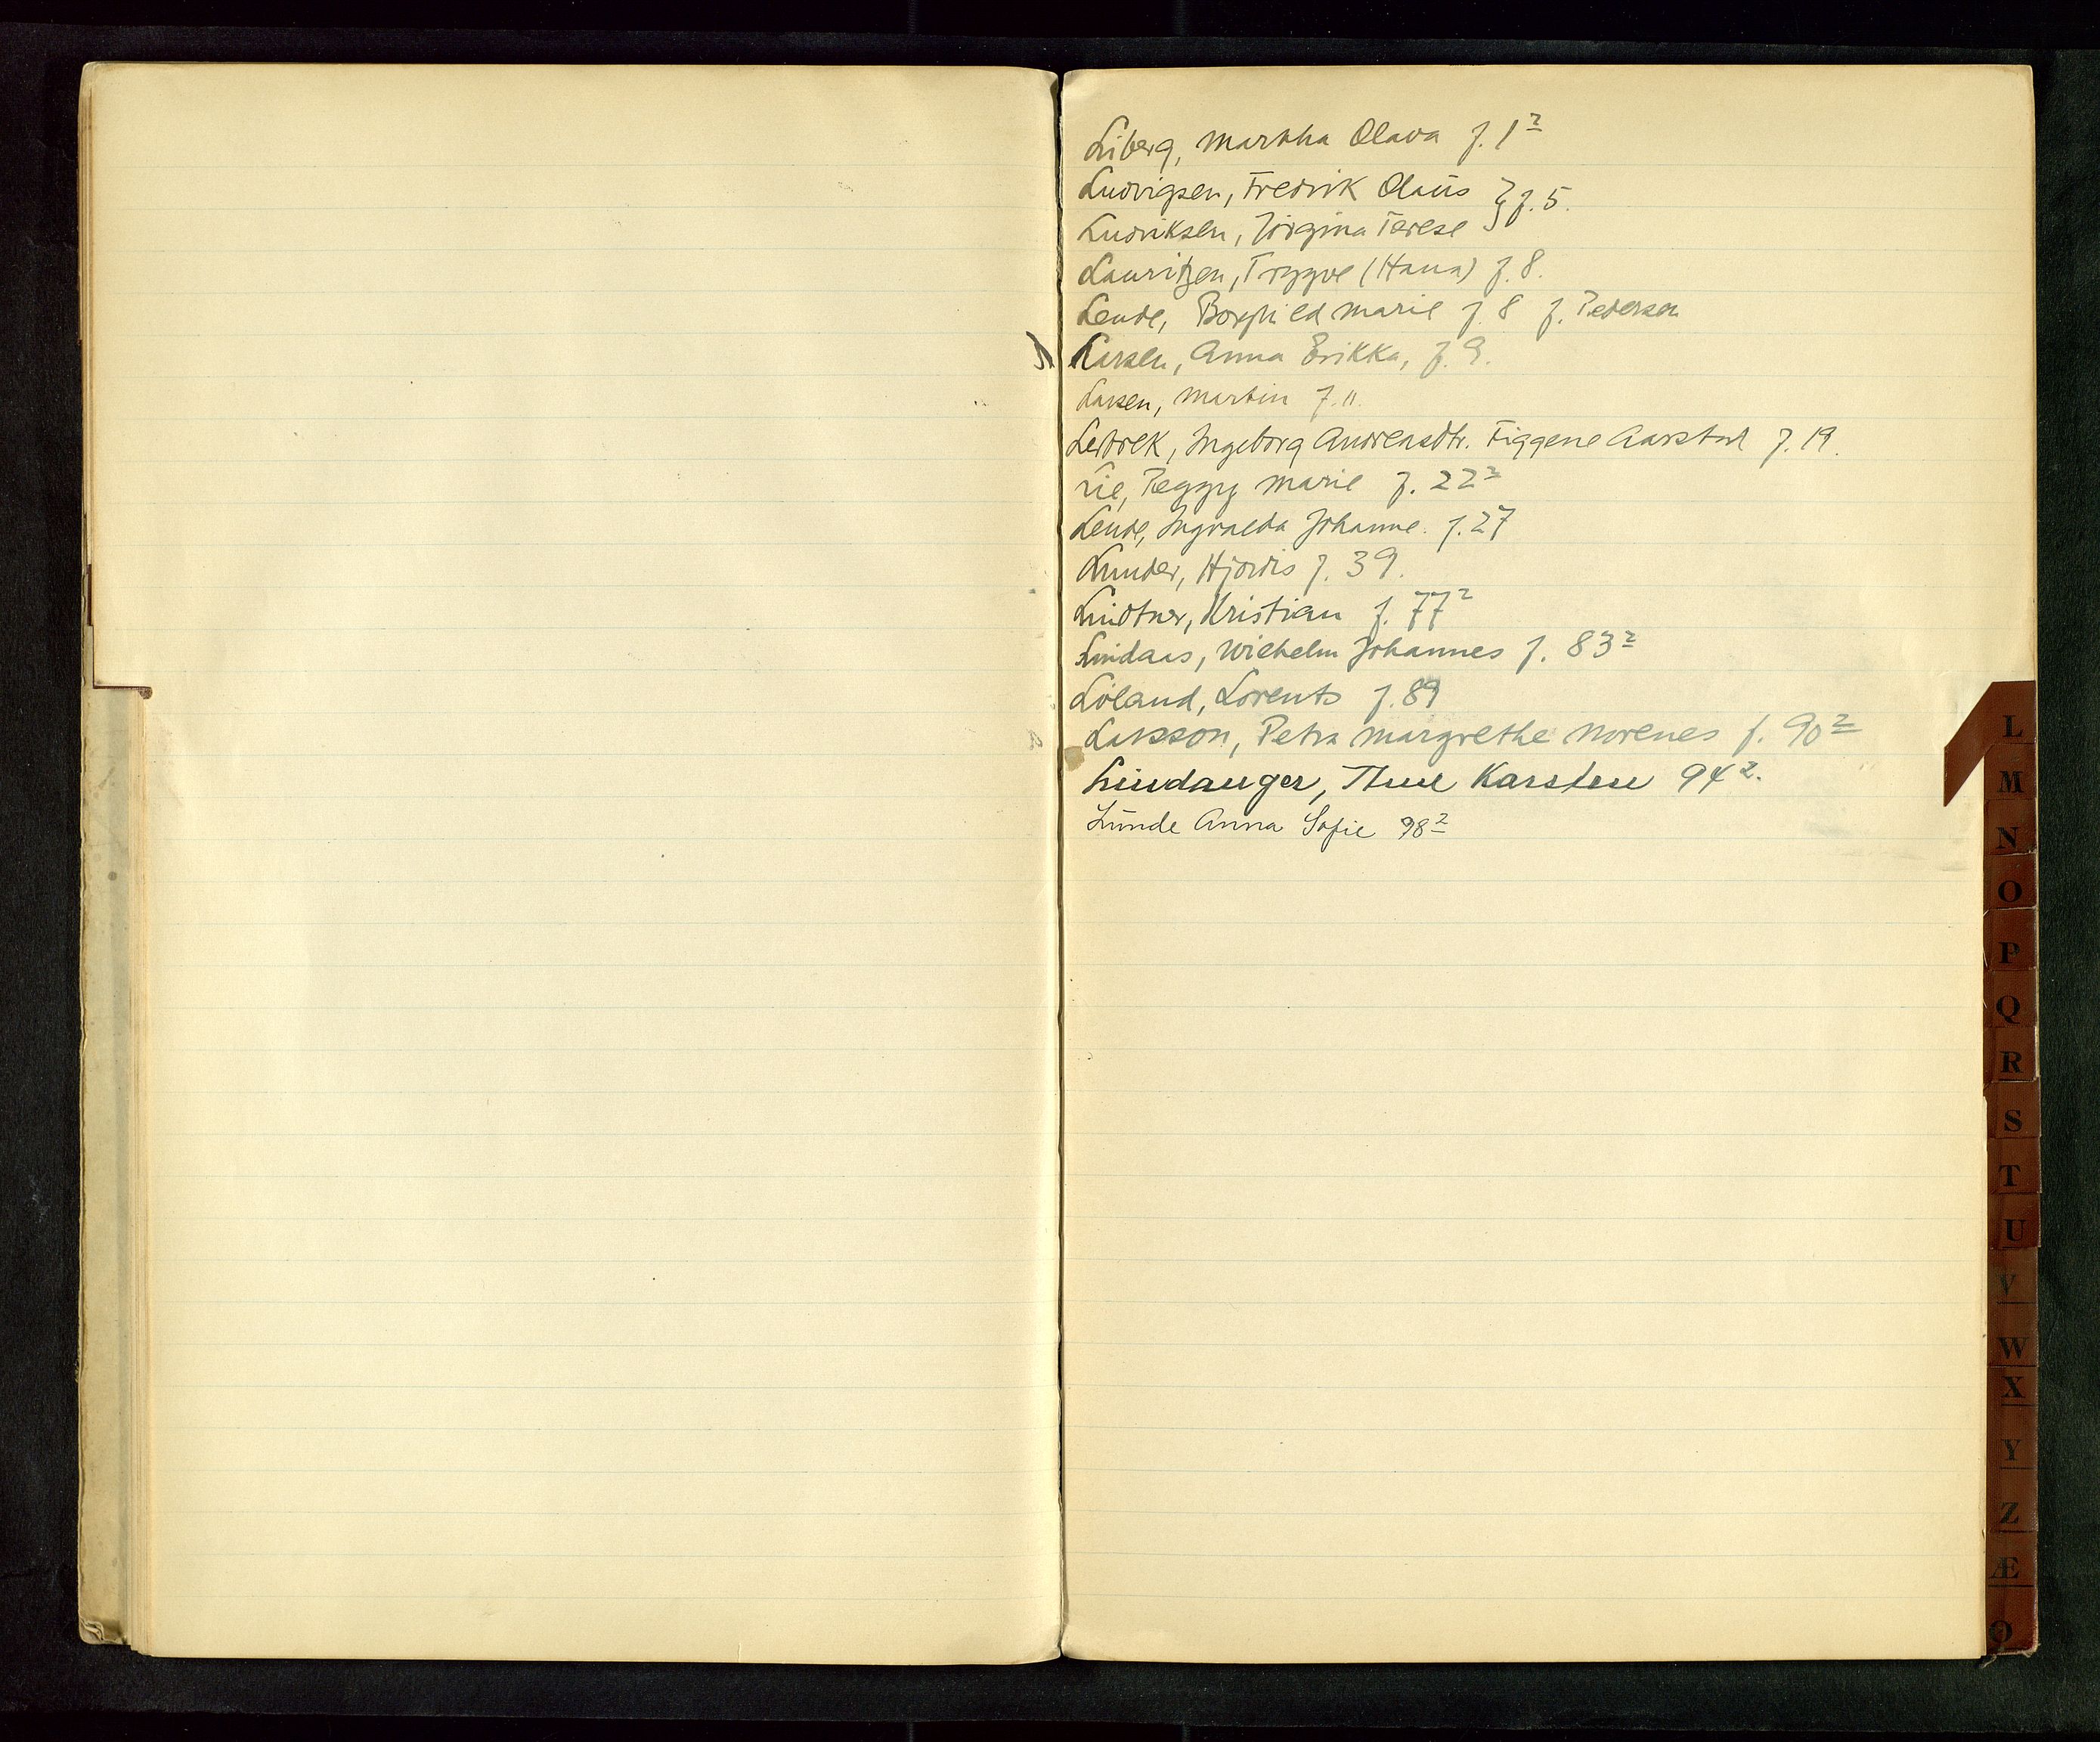 Liberg, Martha Olava f. 1²
Ludvigsen, Fredrik Olaus } f. 5.
Ludviksen, Jörgina Terese
Lauritzen, Tryggve (Hana) f. 8.
Lende, Borghild Marie f. 8 f. Pedersen
Larsen, Anna Erikka, f. 9.
Larsen, Martin f. 11.
Ledrek, Ingeborg Andreasdtr. Figgene Aarstad f. 19.
Lie, Peggy Marie f. 22²
Lende, Ingvalda Johanne f. 27
Lunder, Hjördis f. 39.
Lindtner, Kristian f. 77²
Lindaas, Wilhelm Johannes f. 83²
Löland, Lorents f. 89
Larsson, Petra Margrethe Norenes f. 90²
Lindanger, Karsten 94².
Lunde Anna Sofie 98²
L
M
N
O
P
Q
R
S
T
U
V
W
X
Y
Z
Æ
Ø